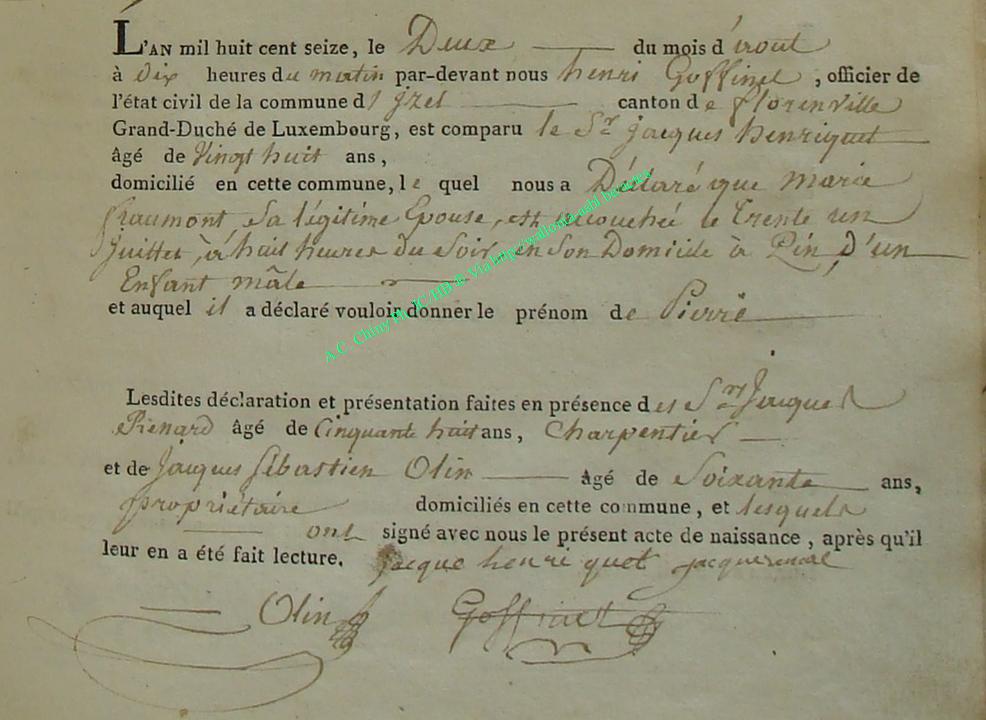 L'AN mil huit cent seize, le Deux du mois d'aout
à dix heures du matin par-devant nous henri Goffinet, officier de
l'état civil de la commune d'Izel canton de florenville
Grand-Duché de Luxembourg, est comparu le Sr jacques henriquet
âgé de Vingt huit ans,
domicilié en cette commune, le quel nous a Déclaré que marie
Sa légitime Epouse, est accouchée le Trente un
juillet, à huit heures du Soir, en Son Domicile à Pin, D'un
Enfant mâle
et auquel il a déclaré vouloir donner le prénom de Pierre
A.C. Chiny Ph. JC/HB © Via http://wallonia.asbl.be
Lesdites déclaration et présentation faites en présence des Srs Jacques
Rénard âgé de Cinquante huit ans, Charpentier
et de Jacques Sébastien Olin âgé de Soixante ans,
propriétaire domiciliés en cette commune, et lesquels
ont signé avec nous le présent acte de naissance, après qu'il
leur en a été fait lecture. jacque henri quet jacque renal
Olin Goffinet